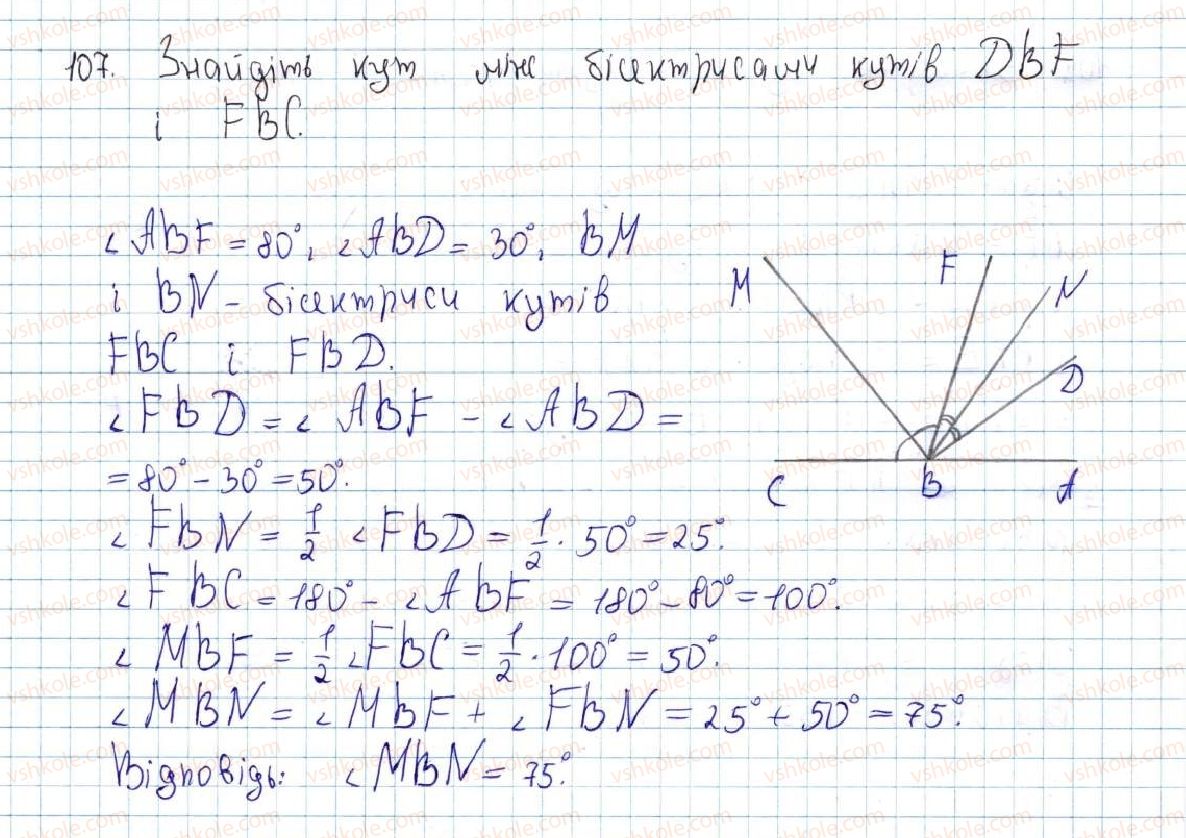 107. Знайдіть кут між бісектрисами кутів DBF
і FBC.
∠ABF = 80°, ∠ABD = 30°, BM
і BN - бісектриси кутів
FBC і FBD.
∠FBD = ∠ABF - ∠ABD =
= 80° - 30° = 50°.
∠FBN = 1/2 ∠FBD = 1/2 · 50° = 25°.
∠FBC = 180° - ∠ABF = 180° - 80° = 100°.
∠MBF = 1/2 ∠FBC = 1/2 · 100° = 50°.
∠MBN = ∠MBF + ∠FBN = 25° + 50° = 75°.
Відповідь: ∠MBN = 75°.
M F N
D
C B A
vshkole.com